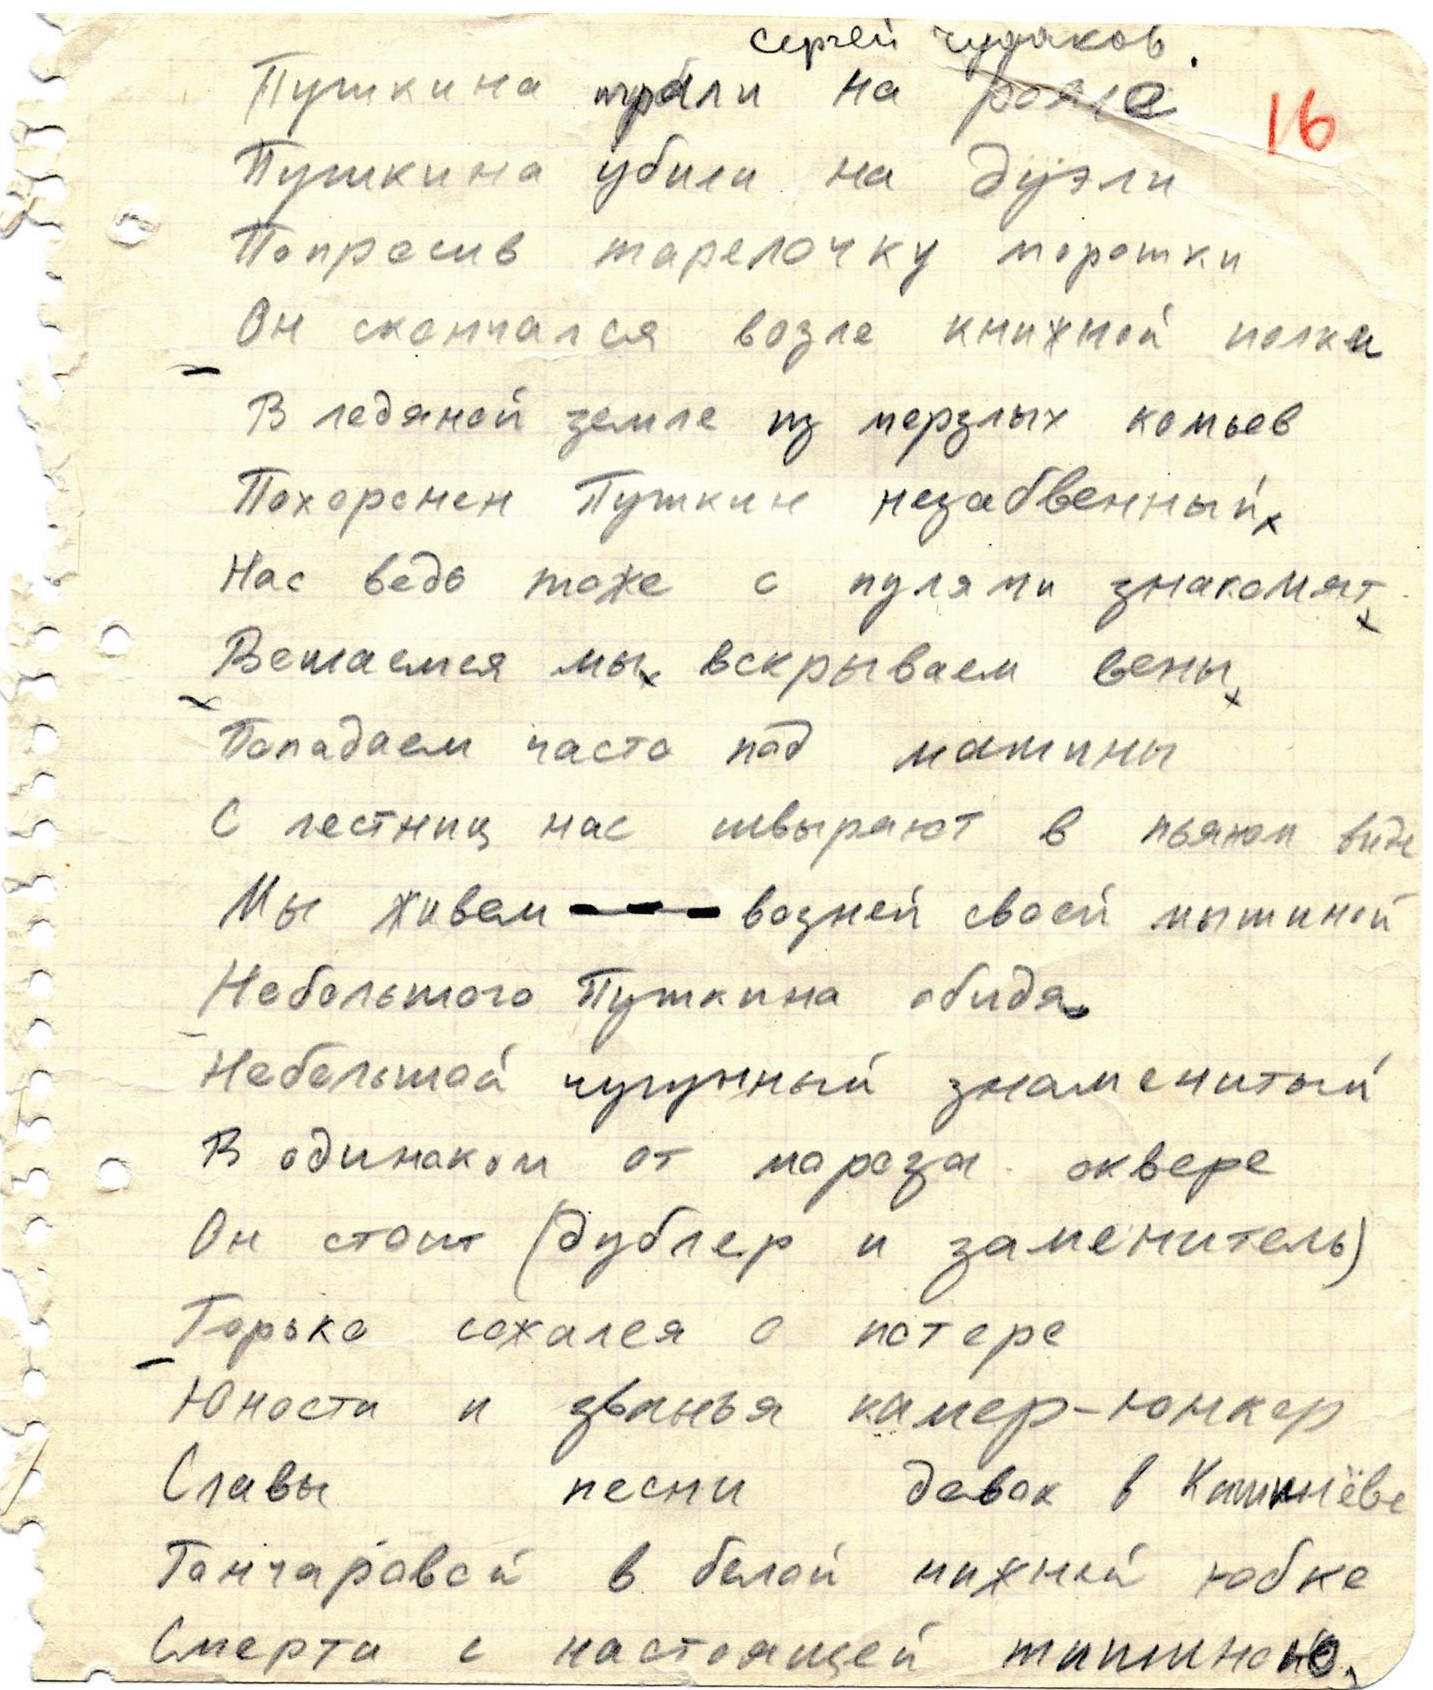 Сергей Чудаков.
Пушкина играли на рояле
16
Пушкина убили на дуэли
Попросив тарелочку морошки
Он скончался возле книжной полки
В ледяной земле из мерзлых комьев
Похоронен Пушкин незабвенный
Нас ведь тоже с пулями знакомят
Вешаемся мы вскрываем вены
Попадаем часто под машины
С лестниц нас швыряют в пьяном виде
Мы живем --- возней своей мышиной
Небольшого Пушкина обидя
Небольшой чугунный знаменитый
В одиноком от мороза сквере
Он стоит (дублер и заменитель)
Горько сожалея о потере
Юности и званья камер-юнкер
Славы песни девок в Кишинёве
Гончаровой в белой нижней юбке
Смерти с настоящей тишиною